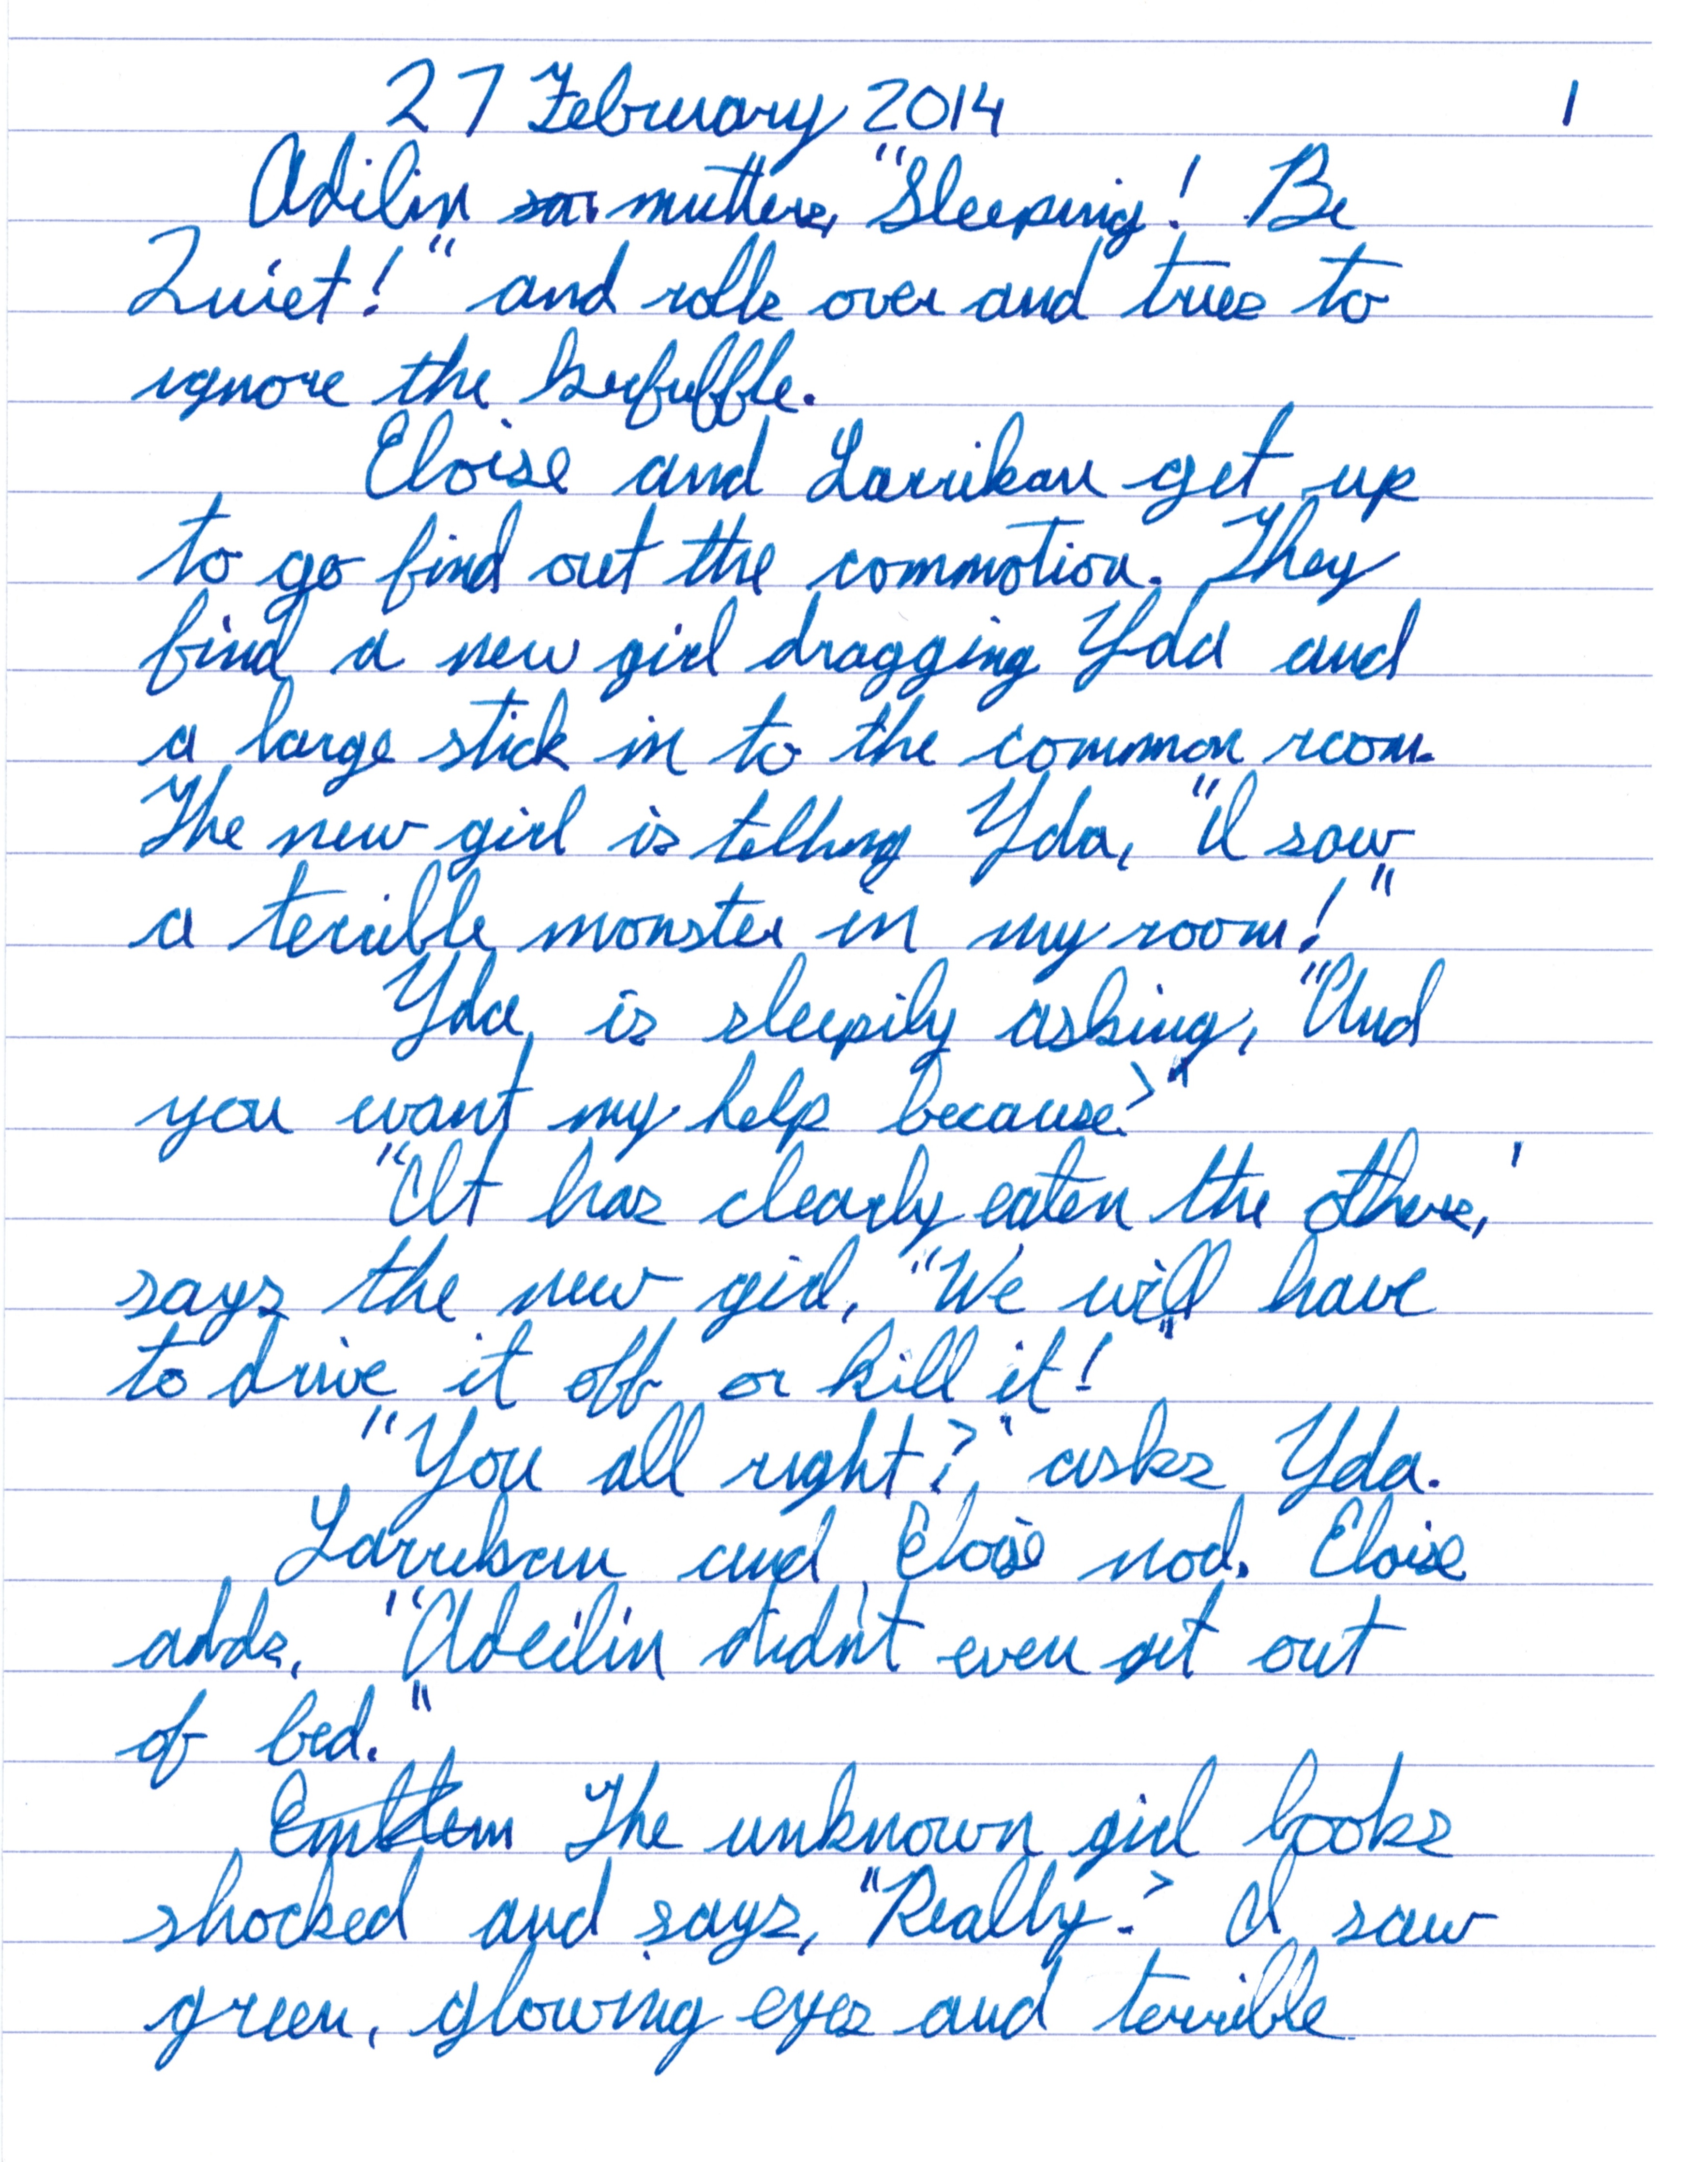 27 February 2014 1
Adilin sai mutters, "Sleeping! Be
Quiet!" and rolls over and tries to
ignore the kerfuffle.
Eloise and Larrikan get up
to go find out the commotion. They
find a new girl dragging Yda and
a large stick in to the common room.
The new girl is telling Yda, "I saw
a terrible monster in my room!"
Yda is sleepily asking, "And
you want my help because?"
"It has clearly eaten the others,"
says the new girl, "We will have
to drive it off or kill it!"
"You all right?," asks Yda.
Larrikan and Eloise nod. Eloise
adds, "Adeilin didn't even get out
of bed."
Emblem The unknown girl looks
shocked and says, "Really? I saw
green, glowing eyes and terrible